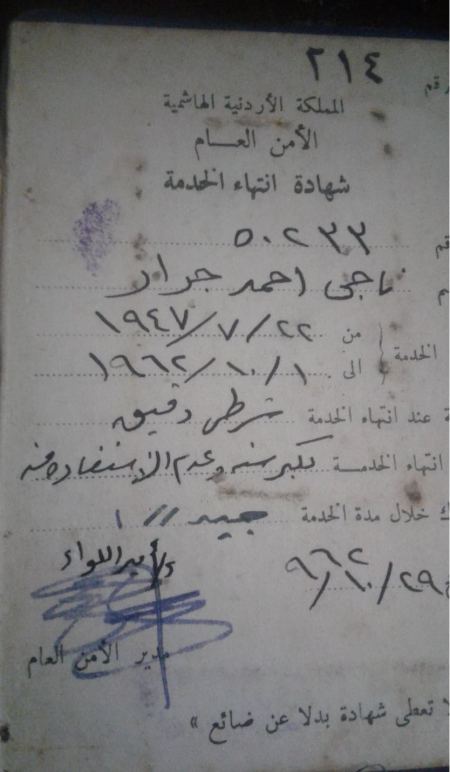 رقم ٢١٤
المملكة الأردنية الهاشمية
الأمن العـــام
شهادة انتهاء الخدمة
قم ٥٠٢٣٣
م ناجي احمد جرار
الخدمة { من ١٩٤٧/٧/٢٢
الى ١٩٦٢/١٠/١
ة عند انتهاء الخدمة شرطي
انتهاء الخدمــة لكبر سنه وعدم الاستفادة منه
ك خلال مدة الخدمة جيد
٩٦٢/١٠/٢٩
أمير اللواء
مدير الأمن العام
لا تعطى شهادة بدلا عن ضائع »